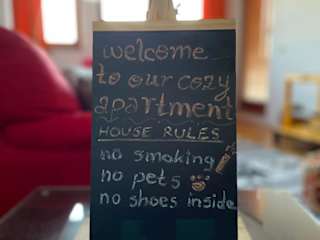 welcome
to our cozy
apartment
HOUSE RULES
no smoking
no pets
no shoes inside